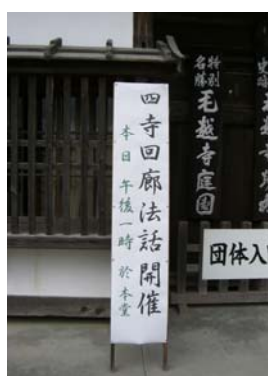 四寺回廊法話開催
本日 午後一時 於本堂
特別
名勝
毛越寺庭園
団体入